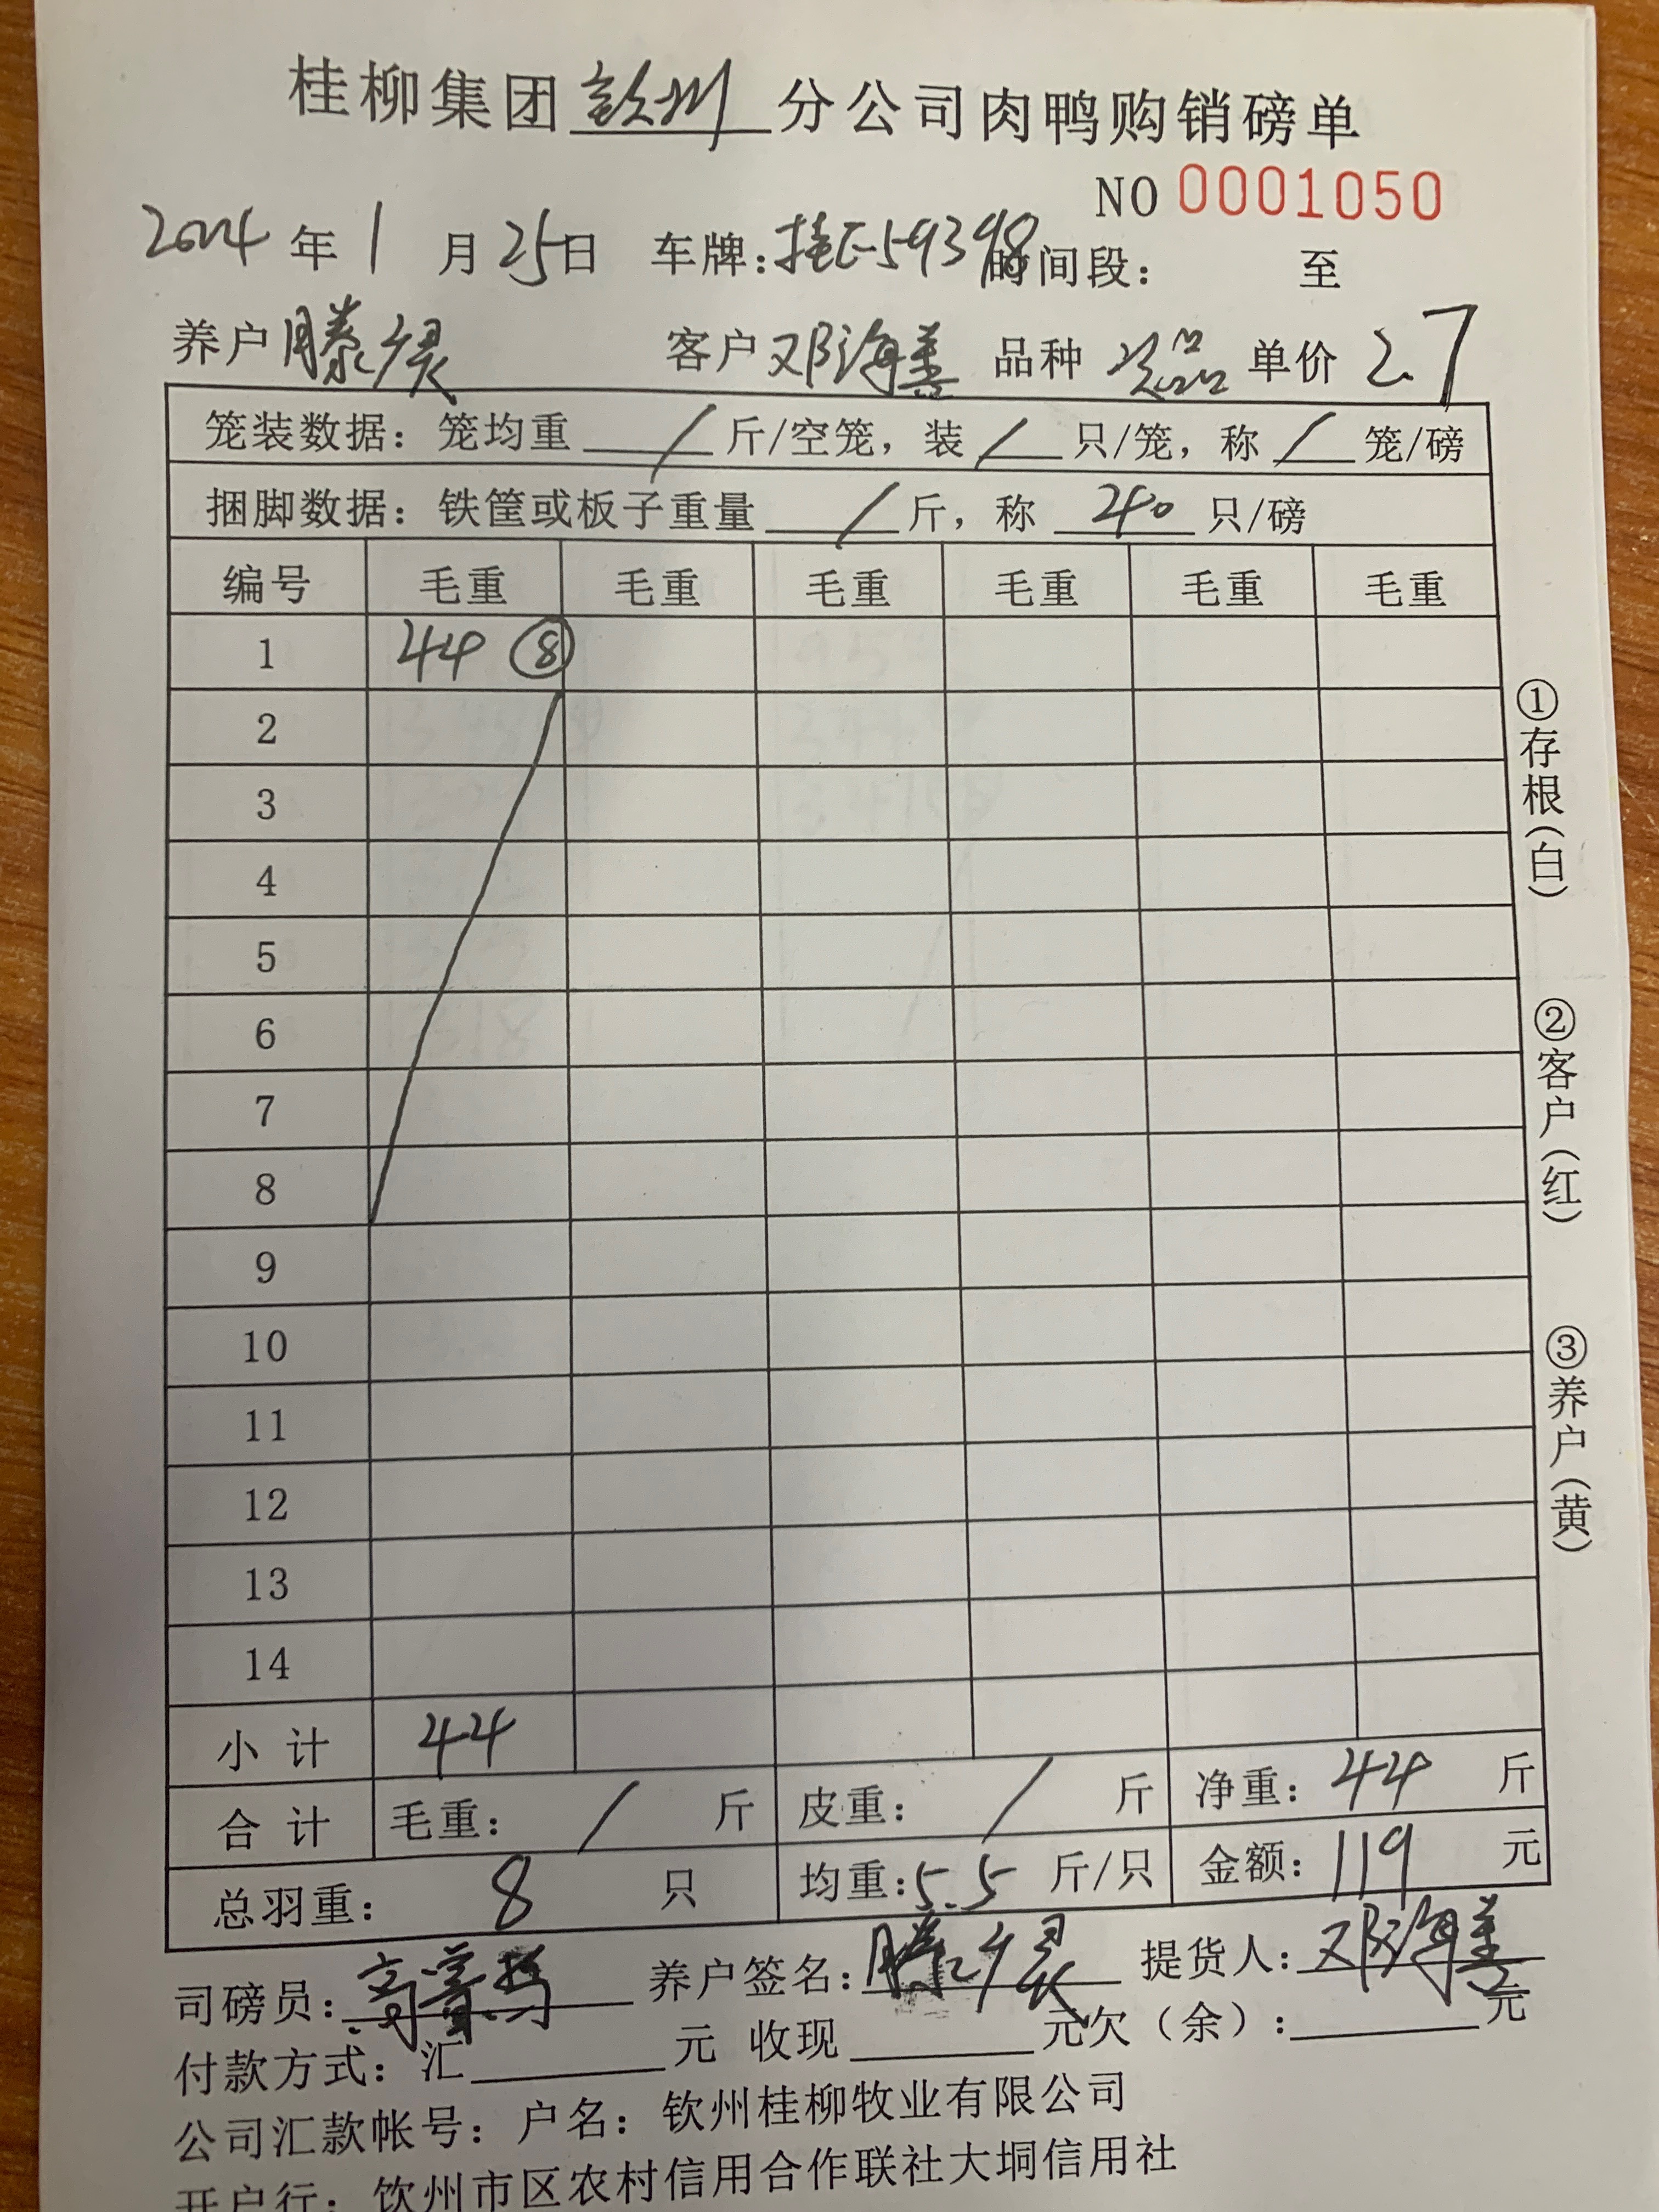 桂柳集团钦州分公司肉鸭购销磅单
NO 0001050
2024年1月25日 车牌:桂E59398 时间段: 至
养户滕 客户邓海善 品种次品 单价2.7
笼装数据:笼均重/斤/空笼,装/只/笼,称/笼/磅
捆脚数据:铁筐或板子重量/斤,称240只/磅
编号 毛重 毛重 毛重 毛重 毛重 毛重
1 44 ⑧
2
3
4
5
6
7
8
9
10
11
12
13
14
小计 44
合计 毛重:/斤 皮重:/斤 净重:44斤
总羽重:8只 均重:5.5斤/只 金额:119元
司磅员: 养户签名:滕 提货人:邓海善
付款方式:汇 元 收现 元欠(余): 元
公司汇款帐号:户名:钦州桂柳牧业有限公司
开户行:钦州市区农村信用合作联社大垌信用社
①存根(白)
②客户(红)
③养户(黄)